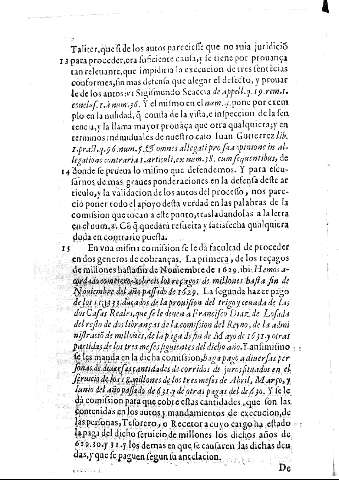 Taliter, que si de los autos pareciesse que no auia juridiciõ
13 para proceder, era suficiente causa, y se tiene por prouança
tan releuante, que impidiria la execucion de tres sentẽcias
conformes, sin mas defensa que alegar el defecto, y prouar
le de los autos: Sigismundo Scaccia de appell. q. 19. rem. 1.
conclus. 1. à num. 36. Y el mismo en el num. 4. pone por exem
plo en la nulidad, q̃ consta de la vista, e inspeccion de la sen
tencia, y la llama mayor prouãça que otra qualquiera; y en
terminos indiuiduales de nuestro caso Iuan Gutierrez lib.
1. pract. q. 96. num. 5. & omnes allegati pro sua opinione in al-
legatione contraria 1. articuli, ex num. 38. cum sequentibus, de
14 donde se prueua lo mismo que defendemos. Y para escu-
sarnos de mas graues ponderaciones en la defensa deste ar
ticulo, y la validacion de los autos del processo, nos pare-
ciò poner todo el apoyo desta verdad en las palabras de la
comission que tocan a este punto, trasladandolas a la letra
en el num. 8. Cõ q̃ quedarà resuelta y satisfecha qualquiera
duda en contrario puesta.
15 En vna misma comission se le dà facultad de proceder
en dos generos de cobranças. La primera, de los reçagos
de millones hasta fin de Nouiembre de 1629. ibi: Hemos a-
cordado cometeros sobre los reçagos de millones hasta fin de
Nouiembre del año passado de 1629. La segunda hazer pago
de los ducados de la prouision del trigo y ceuada de las
dos Casas Reales, que se le deuen a Francisco Diaz de Losada
del resto de dos libranças de la comission del Reyno, de la admi
nistracion de millones, de la paga de fin de Mayo de 1631. y otras
partidas de los tres meses siguientes del dicho año. Y antissimo
se les manda en la dicha comission, haga pago a diuersas per
sonas de diuersas cantidades de corridos de juros, situados en el
seruicio de los millones de los tres meses de Abril, Março, y
Iunio del año passado de 631. y de otras pagas del de 630. Y se le
dà comission para que cobre estas cantidades, que son las
contenidas en los autos y mandamientos de execucion, de
las personas, Tesorero, o Recetor a cuyo cargo ha estado
la paga del dicho seruicio de millones los dichos años de
629. 30. y 31. y los demas en que se causaren las dichas deu
das, y que se paguen segun su antelacion.
De